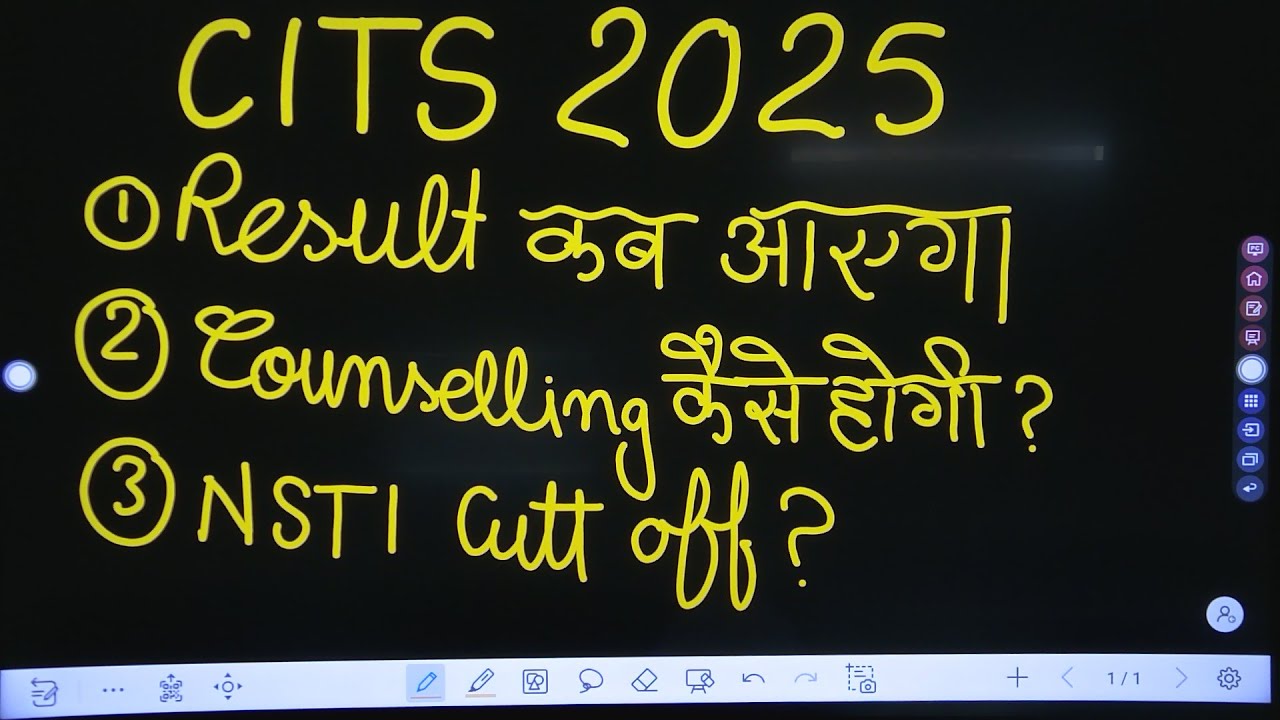 CITS 2025
① Result कब आएगा
② Counselling कैसे होगी ?
③ NSTI Cutt off ?
PC
1/1